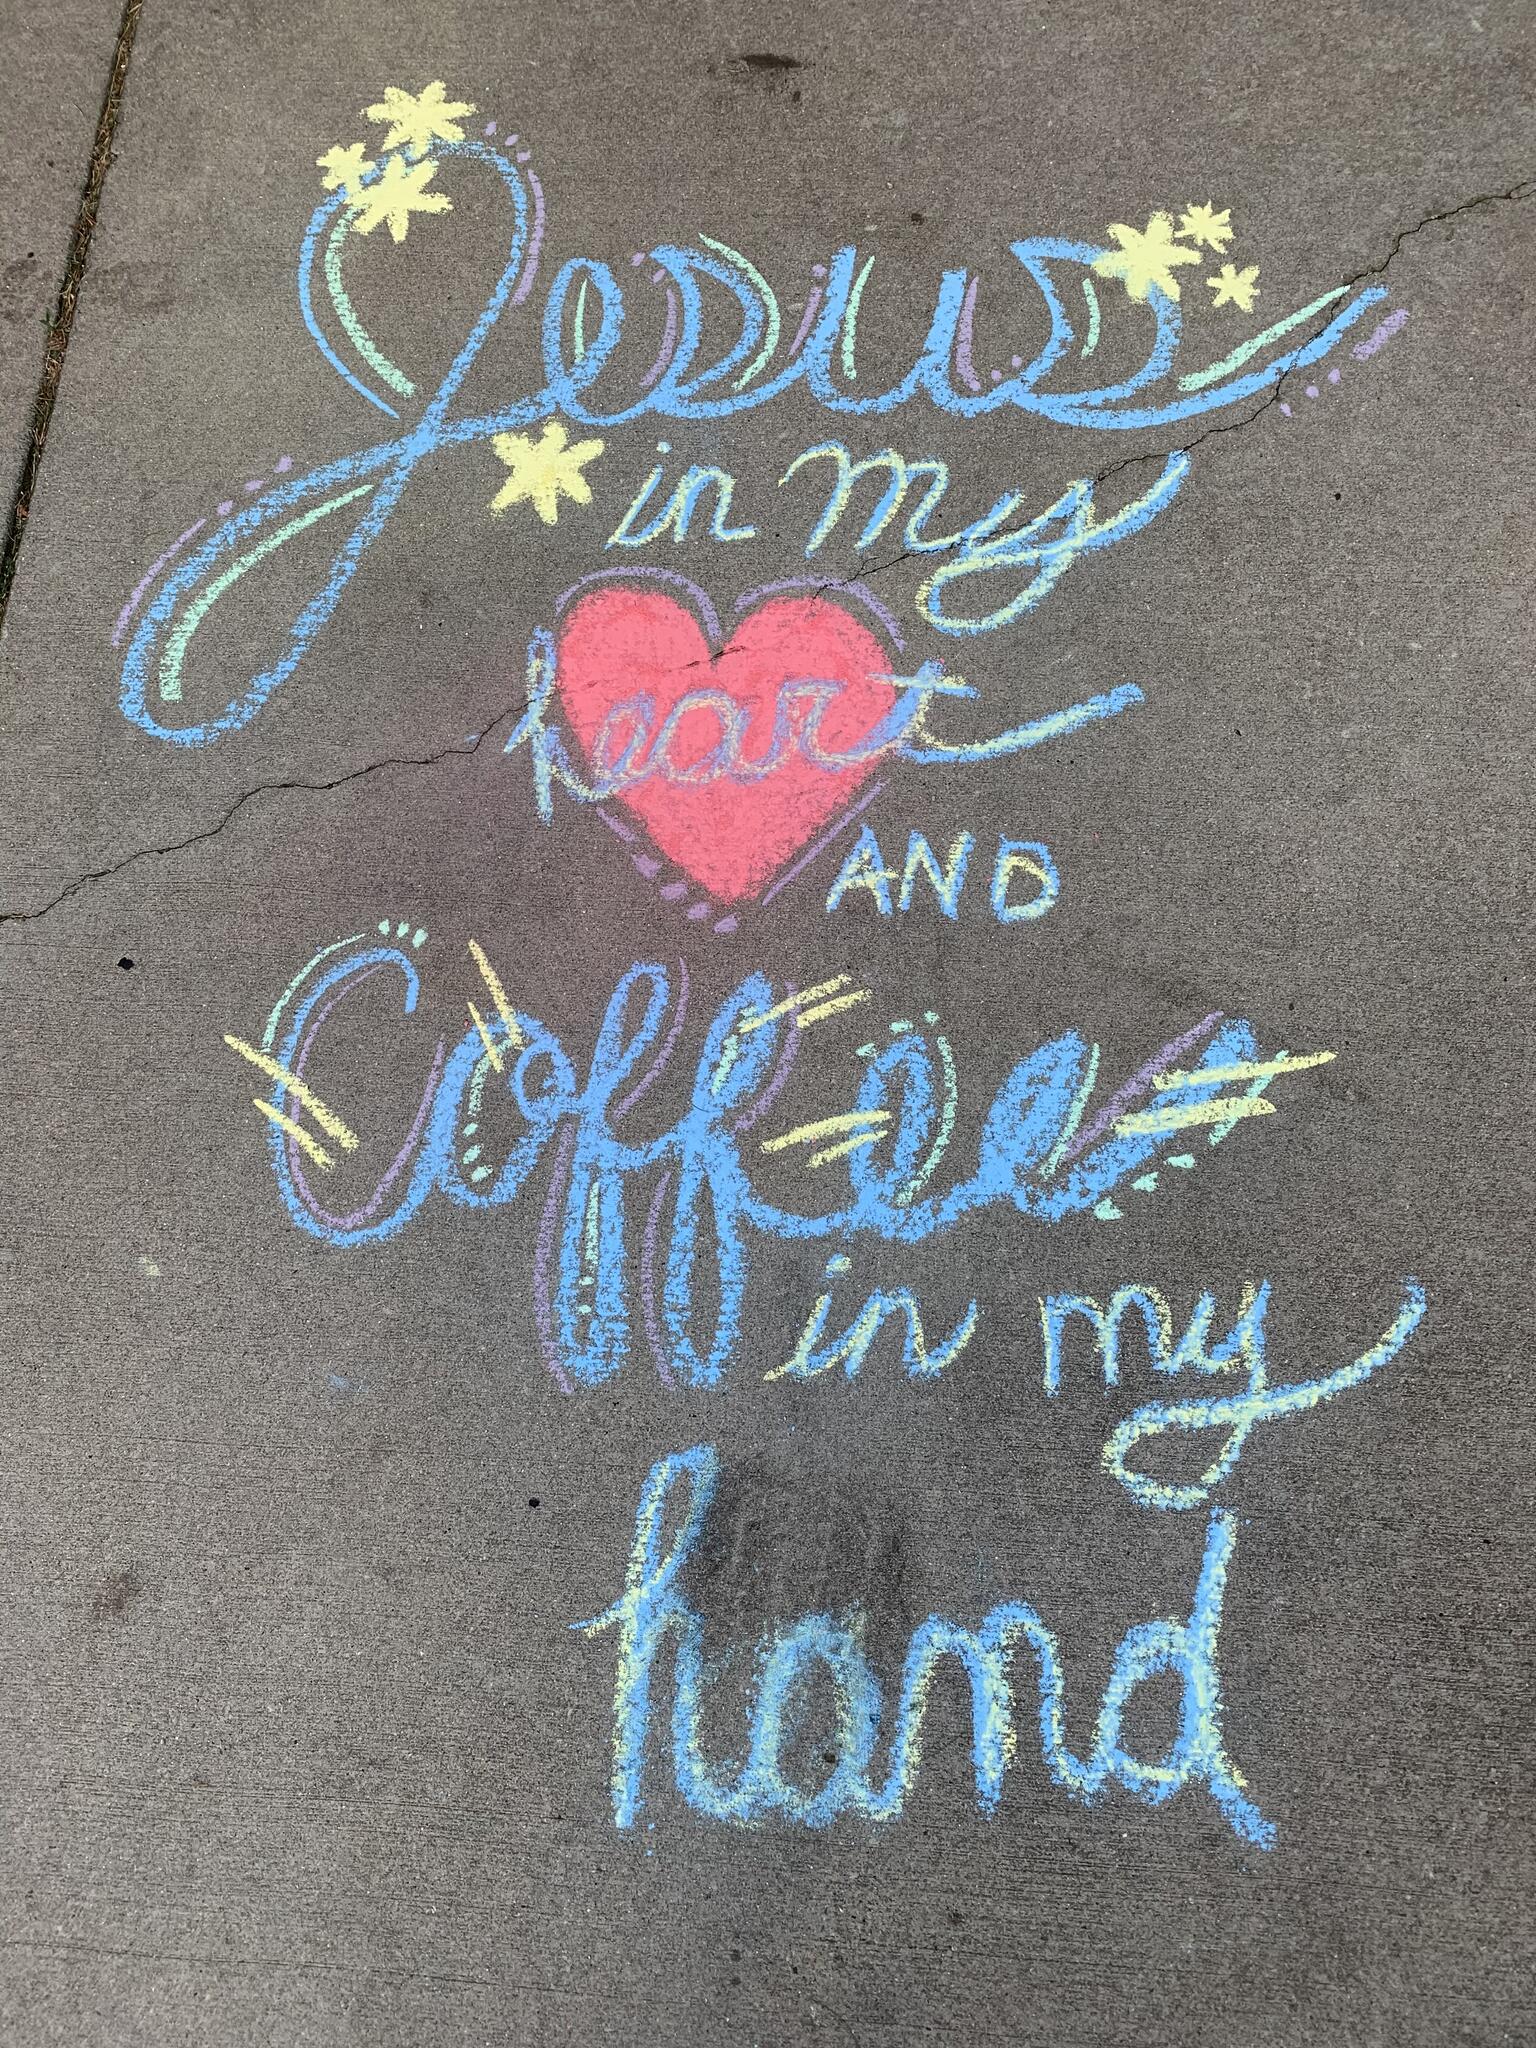 Jesus
in my
heart
AND
Coffee
in my
hand